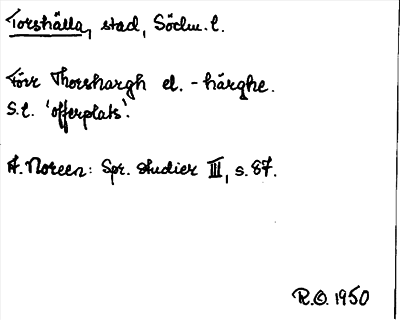 Torshälla, stad, Södm. l.
Förr Thorshargh el. -härghe.
S. l. 'offerplats'.
A. Noreen: Spr. studier III, s. 87.
R.O. 1950